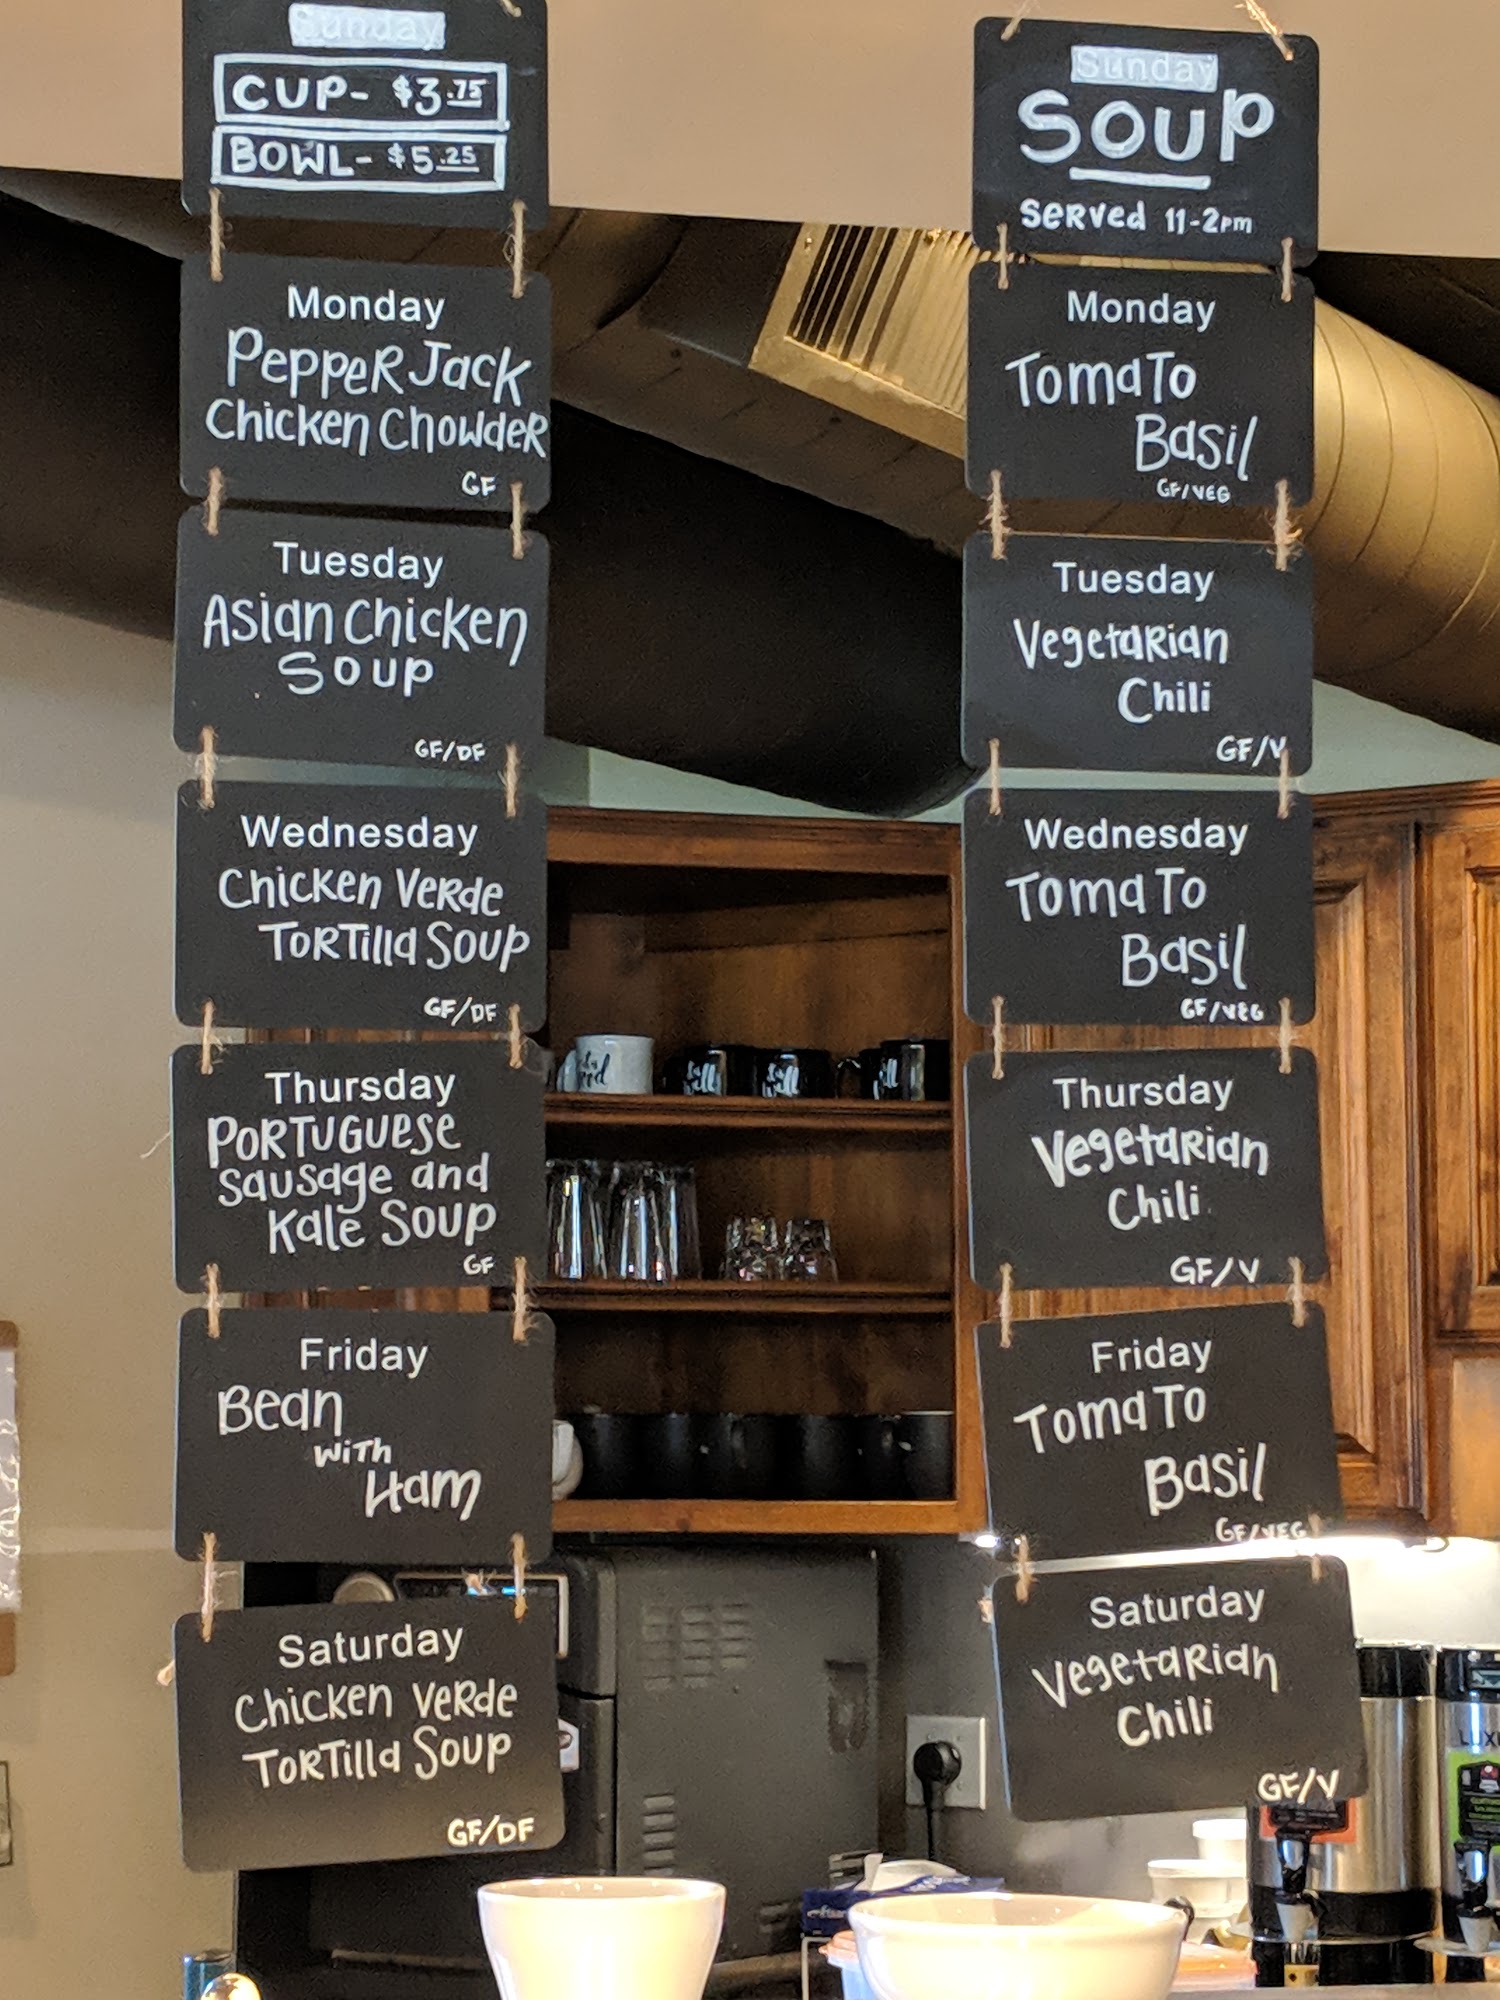 Sunday
CUP- $3.75
BOWL- $5.25
Monday
Pepper Jack
Chicken Chowder
GF
Tuesday
Asian Chicken
Soup
GF/DF
Wednesday
Chicken Verde
Tortilla Soup
GF/DF
Thursday
Portuguese
Sausage and
Kale Soup
GF
Friday
Bean
with
Ham
Saturday
Chicken Verde
Tortilla Soup
GF/DF
Sunday
SOUP
Served 11-2pm
Monday
Tomato
Basil
GF/VEG
Tuesday
Vegetarian
Chili
GF/V
Wednesday
Tomato
Basil
GF/VEG
Thursday
Vegetarian
Chili
GF/V
Friday
Tomato
Basil
GF/VEG
Saturday
Vegetarian
Chili
GF/V